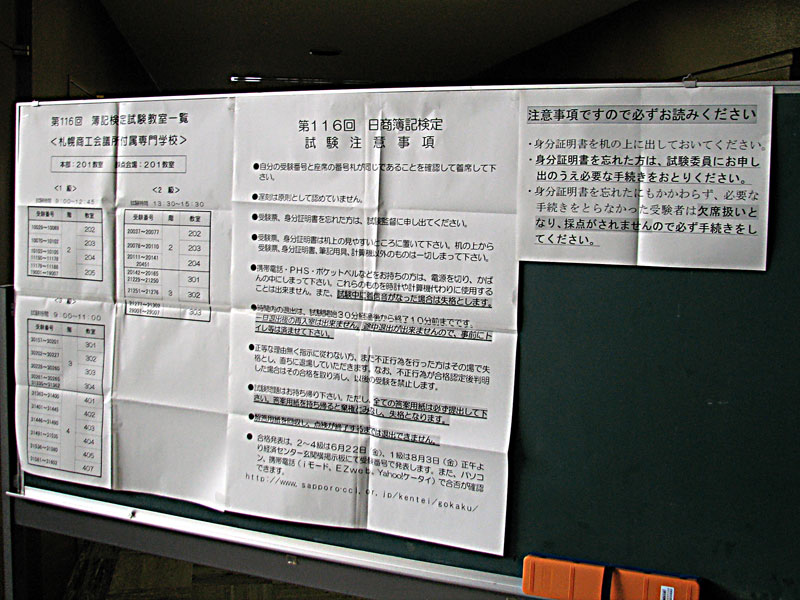 第116回 簿記検定試験教室一覧
<札幌商工会議所付属専門学校>
本部：201教室 採点会場：201教室
<1 級>
試験時間 9:00～12:45
受験番号 階 教室
2
202
203
204
205
<2 級>
試験時間 13:30～15:30
受験番号 階 教室
20037～20077 202
20078～20110 2 203
20111～20141
20451 204
20142～20165
301
3 302
303
<3 級>
9:00～11:00
受験番号 階 教室
301
302
3 303
304
401
402
403
4 404
405
407
第116回 日商簿記検定
試験注意事項
●自分の受験番号と座席の番号札が同じであることを確認して着席して下
さい。
●遅刻は原則として認めていません。
●受験票、身分証明書を忘れた方は、試験監督に申し出てください。
●受験票、身分証明書は机上の見やすいところに置いて下さい。机の上から
受験票、身分証明書、筆記用具、計算機以外のものは一切しまって下さい。
●携帯電話・PHS・ポケットベルなどをお持ちの方は、電源を切り、かば
んの中にしまって下さい。これらのものを時計や計算機代わりに使用する
ことは出来ません。また、試験中に着信音がなった場合は失格とします。
●時間内の退出は、試験開始30分経過後から終了10分前までです。
一旦退出後の再入室は出来ません。途中退出が出来ませんので、事前にト
イレ等は済ませて下さい。
●正等な理由無く指示に従わない方、また不正行為を行った方はその場で失
格とし、直ちに退場していただきます。なお、不正行為が合格認定後判明
した場合はその合格を取り消し、以後の受験を禁止します。
●試験問題はお持ち帰り下さい。ただし、全ての答案用紙は必ず提出して下
さい。答案用紙を持ち帰ると棄権とみなし、失格となります。
● 合格発表は、2～4級は6月22日（金）、1級は8月3日（金）正午よ
り経済センター玄関横掲示板にて受験番号で発表します。また、パソコ
ン、携帯電話（iモード、EZweb、Yahoo!ケータイ）で合否が確認
できます。
http://www.sapporo-cci.or.jp/kentei/gokaku/
注意事項ですので必ずお読みください
・身分証明書を机の上に出しておいてください。
・身分証明書を忘れた方は、試験委員にお申し
出のうえ必要な手続きをおとりください。
・身分証明書を忘れたにもかかわらず、必要な
手続きをとらなかった受験者は欠席扱いと
なり、採点がされませんので必ず手続きをし
てください。